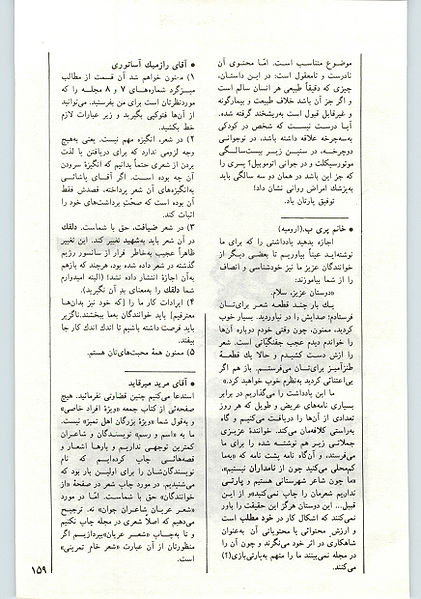 موضوع متناسب است. امّا محتوی آن
نادرست و نامعقول است: در این داستان،
چیزی که دقیقاً طبیعی هر انسان سالم است
و اگر جز آن باشد خلاف طبیعت و بیمارگونه
و غیرقابل قبول است به‌ریشخند گرفته شده.
آیا درست نیست که شخص در کودکی
به‌سه‌چرخه علاقه داشته باشد، در نوجوانی
دوچرخه، در سنین زیر بیست‌سالگی
موتورسیکلت و در جوانی اتوموبیل؟ پسری را
که جز این باشد در همان دو سه سالگی باید
به‌پزشک امراض روانی نشان داد!
توفیق یارتان باد.
● خانم پری ب. (ارومیه)
اجازه بدهید یادداشتی را که برای ما
نوشته‌اید عیناً بیاوریم تا بعضی دیگر از
خوانندگان عزیز ما نیز خودشناسی و انصاف
را از شما بیاموزند:
«دوستان عزیز، سلام.
یک بار چند قطعه شعر برای‌تان
فرستادم؛ صدایش را در نیاوردید. بسیار خوب
کردید، ممنون، چون وقتی خودم دوباره آن‌ها
را خواندم دیدم عجب جفنگیاتی است. شعر
را ازش دست کشیدم و حالا یك قطعهٔ
طنزآمیز برای‌تان می‌فرستم. باز هم اگر
بی‌اعتنائی کردید به‌نظرم خوب خواهید کرد.»
ما این یادداشت را می‌گذاریم در برابر
بسیاری نامه‌های عریض و طویل که هر روز
تعدادی از آن‌ها را دریافت می‌کنیم و گاه
به‌راستی کلافه‌مان می‌کند. خوانندهٔ عزیزی
جملاتی زیر هم نوشته شده را برای ما
می‌فرستد، و آن‌گاه نامه پشت نامه که «به‌ما
کم‌محلی می‌کنید چون از نامداران نیستیم»،
«ما چون شاعر شهرستانی هستیم و پارتی
نداریم شعرمان را چاپ نمی‌کنید» و از این
قبیل... این دوستان هرگز این حقیقت را باور
نمی‌کنند که اشکال کار در خود مطلب است
و ارزش محتوائی یا محتویاتی آن. به‌عنوان
شاهکاری در اثر خود می‌نگرند و چون آن را
در مجله نمی‌بینند ما را متهم به‌پارتی‌بازی(!)
می‌کنند.
● آقای رازمیك آساتوری
۱) ممنون خواهم شد آن قسمت از مطالب
میزگرد شماره‌های ۷ و ۸ مجله را که
موردنظرتان است برای من بفرستید. می‌توانید
از آن‌ها فتوکپی بگیرید و زیر عبارات لازم
خط بکشید.
۲) در شعر، انگیزه مهم نیست. یعنی به‌هیچ
وجه لزومی ندارد که برای دریافتن یا لذت
بردن از شعری حتماً بدانیم که انگیزهٔ سرودن
آن چه بوده است. اگر آقای پاشائی
به‌انگیزه‌های آن شعر پرداخته، قصدش فقط
آن بوده است که صحّت برداشت‌های خود را
اثبات کند.
۳) در شعر ضیافت، حق با شماست. دلقك
در آن شعر باید به‌شهید تغییر کند. این تغییر
ظاهراً عجیب به‌خاطر فرار از سانسور رژیم
گذشته در شعر داده شده بود، هرچند که بازهم
به‌آن اجازهٔ انتشار داده نشد! (البته امیدوارم
شما دلقك را به‌معنای بدِ آن نگیرید).
۴) ایرادات کار ما را (که خود نیز بدان‌ها
معترفیم) باید خوانندگان به‌ما ببخشند. ناگزیر
باید فرصت داشته باشیم تا اندك اندك کار جا
بیفتد.
۵) ممنون همهٔ محبت‌های‌تان هستم.
● آقای مرید میرقاید
استدعا می‌کنیم چنین قضاوتی نفرمائید. هیچ
صفحه‌ئی از کتاب جمعه «ویژهٔ افراد خاصی»
و به‌قول شما «ویژهٔ بزرگان اهل تمیز» نیست.
ما به «اسم و رسم» نویسندگان و شاعران
کمترین توجهی نداریم و بارها اشعار و
قصه‌هائی چاپ کرده‌ایم که نام
نویسندگان‌شان را برای اولین بار بود که
می‌شنیدیم. در مورد چاپ شعر در صفحهٔ «از
خوانندگان» حق با شماست. امّا در مورد
«شعر عریان شاعران جوان» نه. ترجیح
می‌دهیم که اصلا شعری در مجله چاپ نکنیم
و تا به‌چاپ «شعر عریان» بپردازیم. اگر
منظورتان از آن عبارت «شعر خامِ تمرینی»
است.
۱۵۹